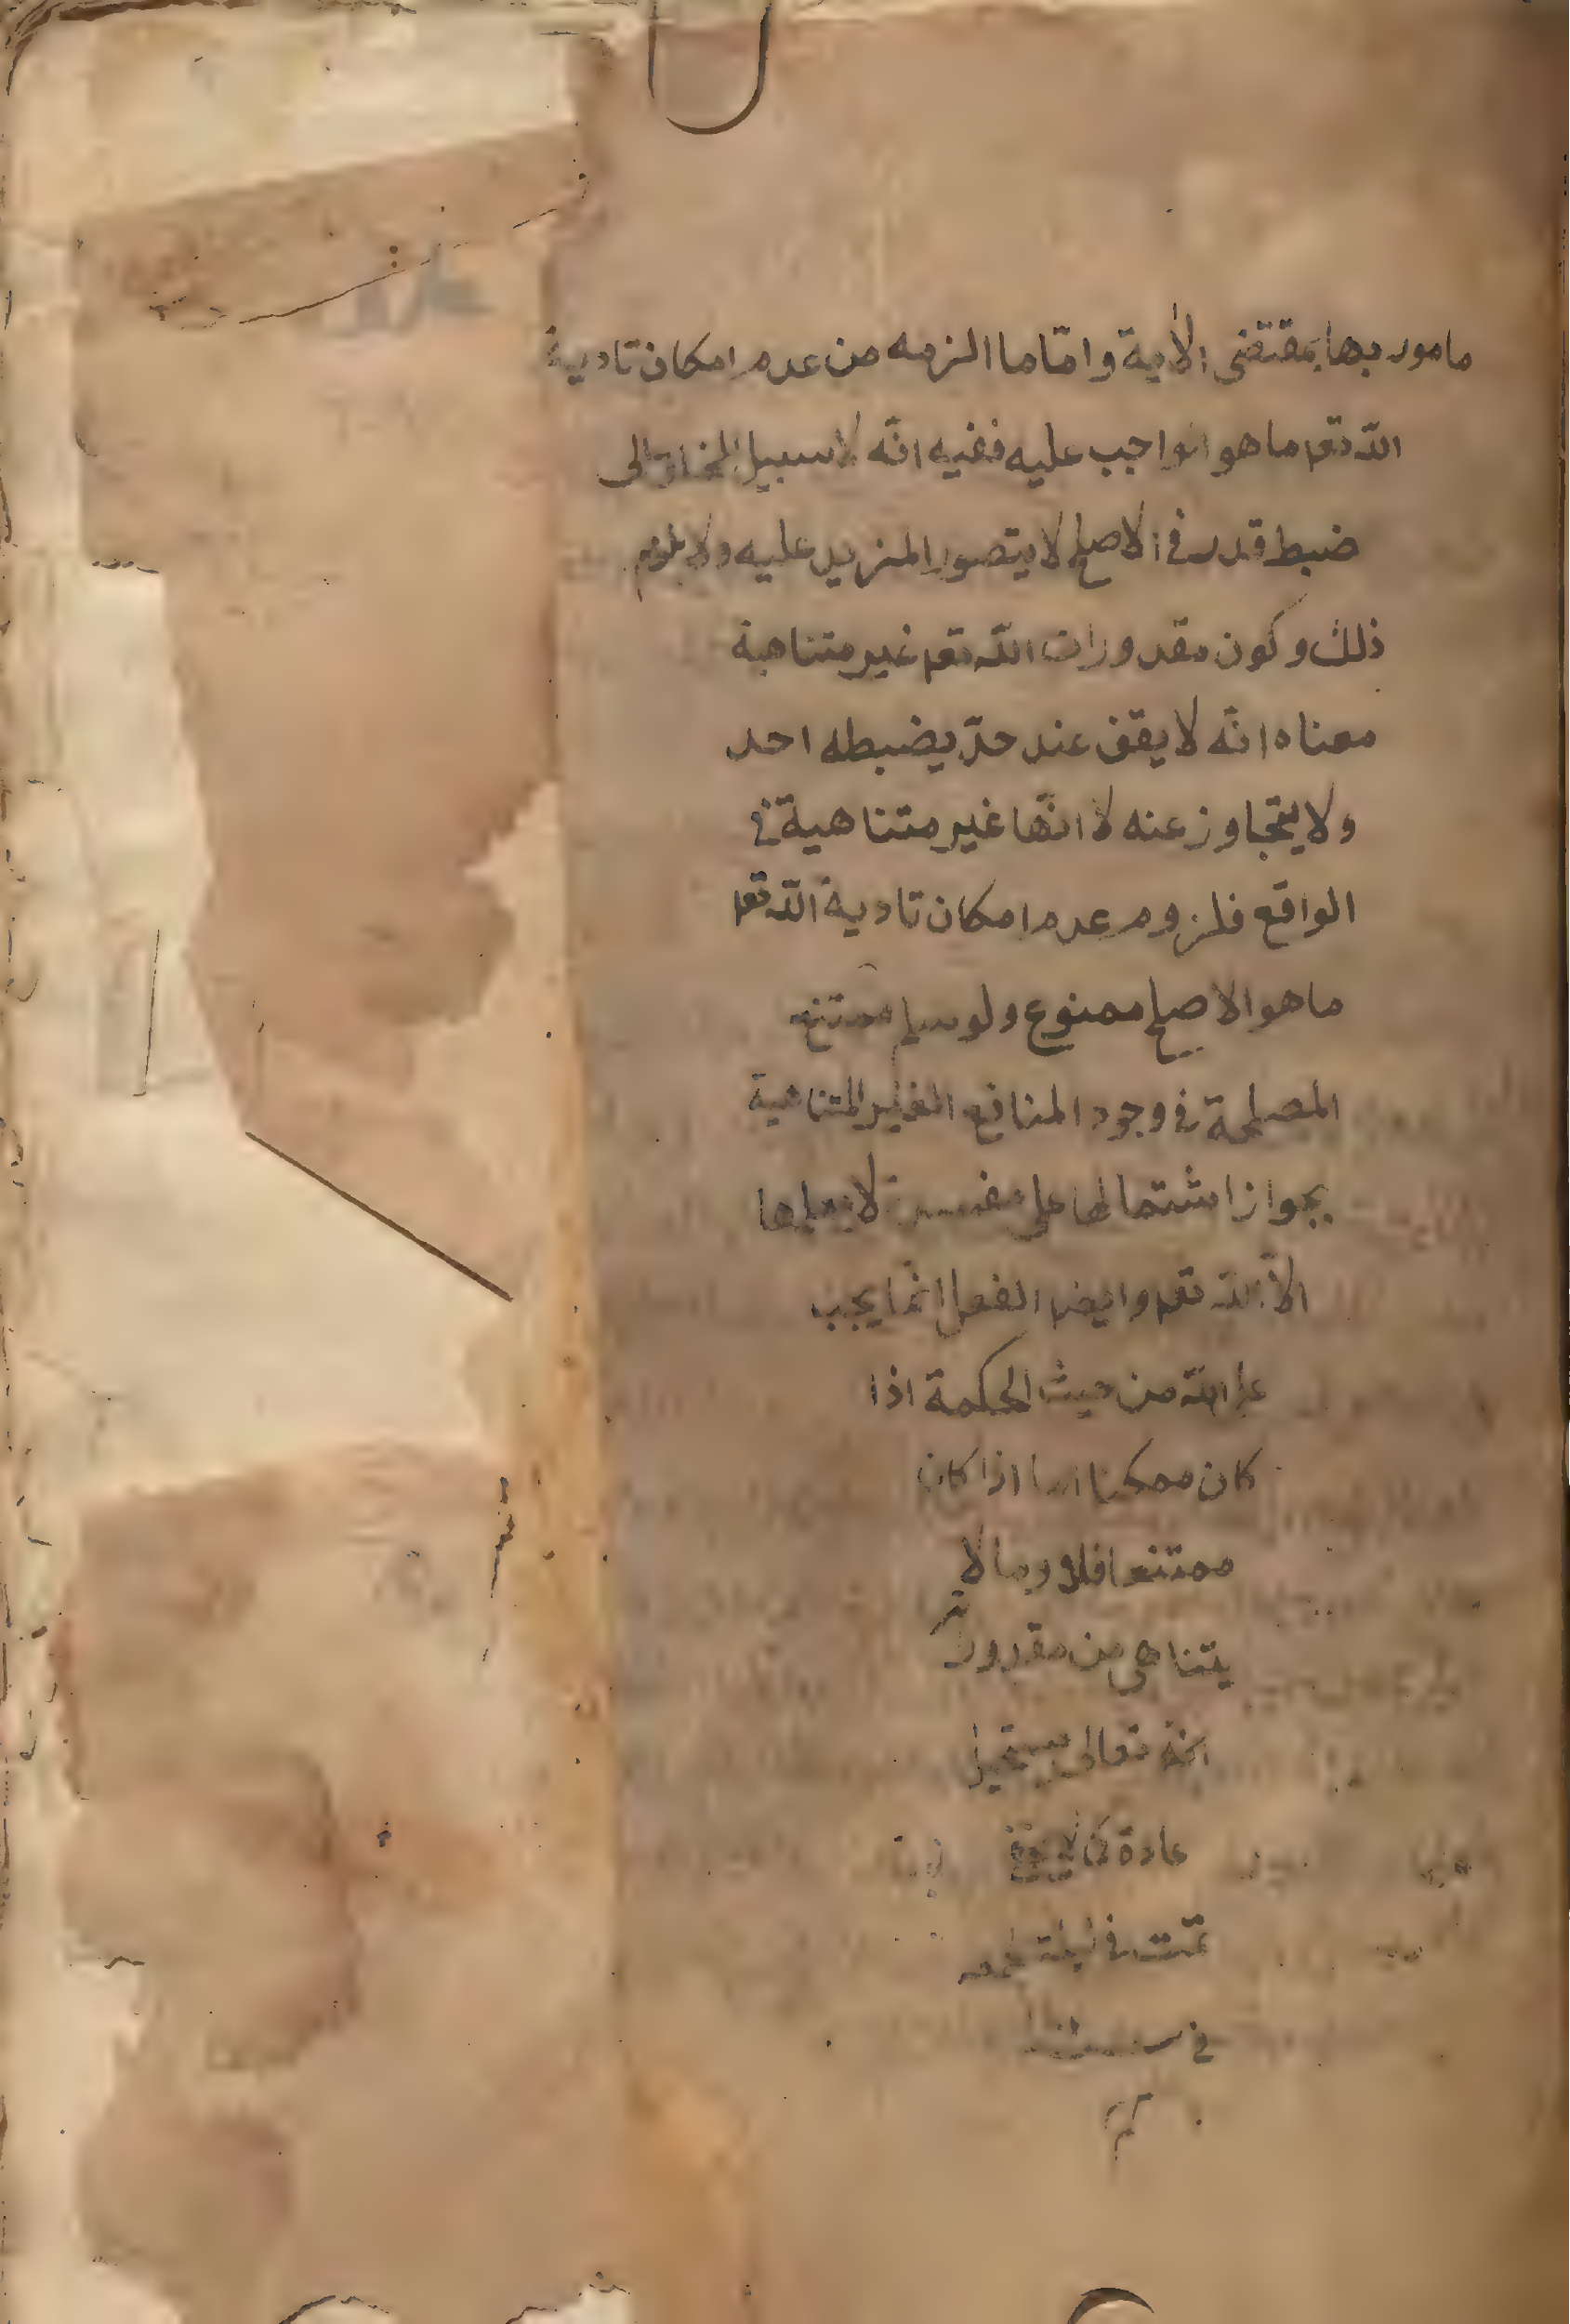 مامور بها بمقتضى الاية وامّا ما الزمه من عدم امكان تادية
الله تعم ما هو الواجب عليه ففيه انّه لا سبيل الى
ضبط قدر فى الاصلح لا يتصور المزيد عليه ولا يلزم
ذلك وكون مقدورات الله تعم غير متناهية
معناه انّه لا يقف عند حدّ يضبطه احد
ولا يتجاوز عنه لا انّها غير متناهية فى
الواقع فلزوم عدم امكان تادية الله تعم
ما هو الاصلح ممنوع ولو سلم
المصلحة فى وجود المنافع الغير المتناهية
بجواز اشتمالها على لا يعلمها
الاّ الله تعم وايضم الفعل انّما يجب
على الله من حيث الحكمة اذا
كان ممكنا اما اذا كان
ممتنعا فلا وما لا
يتناهى من
تعالى مستحيل
عادة كما لا يخفى
تمّت فى ليلة
فى